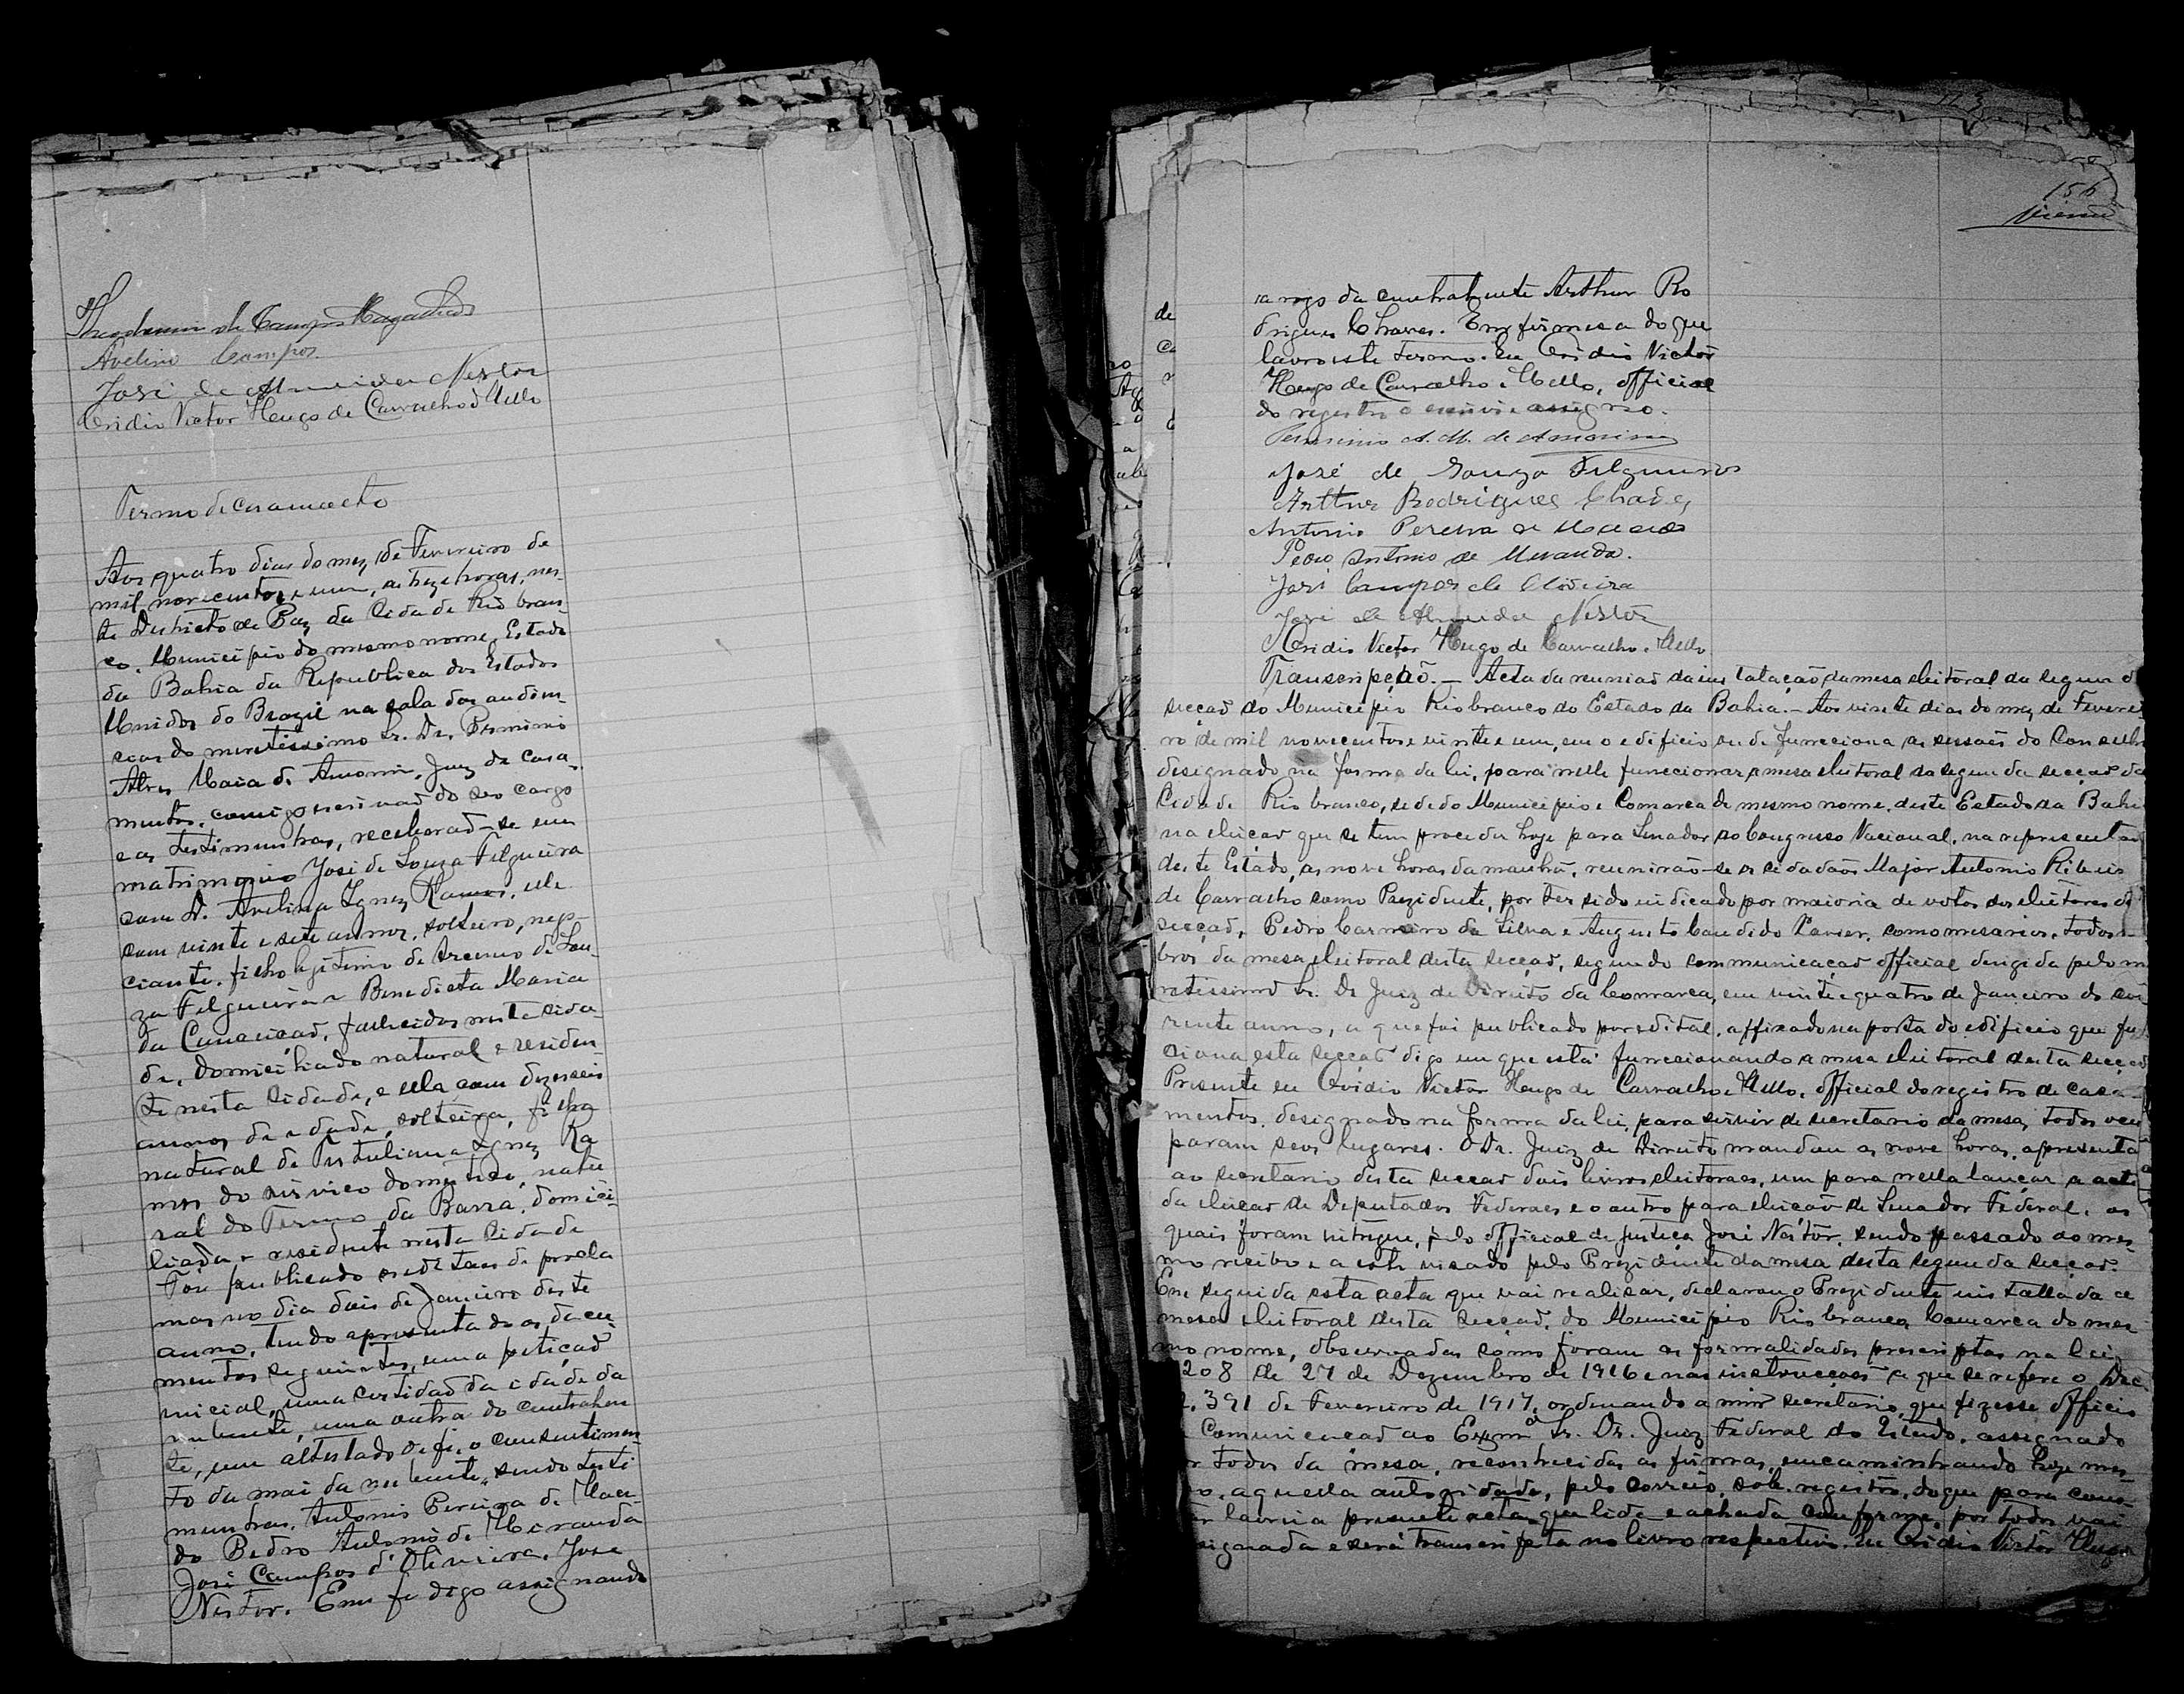 de Campos Magalhães
Avelino Campos
José de Almeida Nestor
Ovidio Victor Hugo de Carvalho e Mello
Termo de casamento
Aos quatro dias do mez de Fevereiro de
mil novecentos e um, as treze horas, nes-
te Districto de Paz da Cidade Rio bran-
co, Municipio do mesmo nome, Estado
da Bahia da Republica dos Estados
Unidos do Brazil na sala das audien-
cias do meretissimo Sr. Dr. Perminio
Alves Maia de Amorim, Juiz de casa-
mentos, comigo escrivaõ do seo cargo
e as testimunhas, receberaõ-se em
matrimonio José de Souza Filgueira
com D. Avelina Ignez Ramos, elle
com vinte e sete annos, solteiro, nego-
ciante, filho legitimo de de Sou-
za Filgueira e Benedicta Maria
da Conceiçaõ, falecidos nesta cida-
de, domiciliado natural e residen-
te nesta Cidade, e ella com dezesseis
annos de edade, solteira, filha
natural de Ignez Ra
mos do serviço domestico, natu
ral do Termo da Barra, domici-
liada e residente nesta Cidade
Foi publicado os editaes de procla
mas no dia dois de Janeiro deste
anno, tendo apresentado os docu-
mentos seguintes, uma petiçaõ
inicial, uma certidaõ da idade da
nubente, uma outra do contrahen
te, um attestado o consentimen-
to da mai da nubente, sendo testi
munhas, Antonio Pereira de Mace-
do Pedro Antonio de Miranda
José Campos d'Oliveira, José
Nestor. Em fé digo assignando
156
a rogo da contrahente Arthur Ro
drigues Chaves. Em firmesa do que
lavro este termo. Eu Ovidio Victor
Hugo de Carvalho e Mello, official
do registro o escrivi e assigno.
Perminio A. M. de Amorim
José de Souza Filgueiras
Arthur Rodrigues Chaves
Antonio Pereira de Macedo
Pedro Antonio de Miranda.
José Campos de Oliveira
José de Almeida Nestor
Ovidio Victor Hugo de Carvalho e Mello
Transcripçaõ. — Acta da reuniaõ da instalaçaõ da mesa eleitoral da segunda
secçaõ do Municipio Rio branco do Estado da Bahia. — Aos vinte dias do mez de Feverei
ro de mil novecentos e vinte e um, em o edificio onde funcciona as sessoẽs do Conselho
designado na forma da lei, para nelle funccionar a mesa eleitoral da segunda secçaõ da
Cidade Rio branco, séde do Municipio e Comarca do mesmo nome, deste Estado da Bahi
na eleiçaõ que se tem proceder hoje para Senador ao Congresso Nacional, na representaç
deste Estado, as nove horas da manhã, reuniraõ-se os cidadaõs Major Antonio Ribeiro
de Carvalho como Prezidente, por ter sido indicado por maioria de votos dos eleitores da
secçaõ, Pedro Carneiro da Silva e Augusto Candido Xavier, como mesarios, todos
bros da mesa eleitoral desta secçaõ, segundo communicaçaõ official dirigida pelo m
retissimo Sr. Dr Juiz de Direito da Comarca, em vinte e quatro de Janeiro do cor
rente anno, a que foi publicado por edital, affixado na porta do edificio que fu
ciona esta secçaõ digo em que está funccionando a mesa eleitoral desta secçaõ
Presente eu Ovidio Victor Hugo de Carvalho e Mello, official do registro de casa-
mentos, designado na forma da lei, para servir de secretario da mesa, todos ocu
param seos lugares. O Dr. Juiz de Direito mandou as nove horas, apresenta
ao secretario desta secçaõ dois livros eleitoraes, um para nella lançar a acta
da eleiçaõ de Deputados Federaes e o outro para eleiçaõ de Senador Federal, os
quais foram entregue, pelo official de justiça José Nestor, sendo passado ao mes-
mo recibo e a este visado pelo Prezidente da mesa desta segunda secçaõ.
Em seguida esta acta que vai realisar, declarou o Prezidente installada a
mesa eleitoral desta secçaõ, do Municipio Rio branco Comarca do mes-
mo nome, observadas como foram as formalidades prescriptas na lei
208 de 27 de Dezembro de 1916 e nas instrucçoẽs a que se refere o Dec
. 391 de Fevereiro de 1917, ordenando a mim secretario que fizesse officio
Comunicacaõ ao Exmº Sr. Dr. Juiz Federal do Estado, assignado
r todos da mesa, reconhecidas as firmas, encaminhando hoje mes-
o, aquella autoridade, pelo correio, sob registro, do que para cons-
r lavrei a presente acta que lida e achada conforme, por todos vai
signada e será transcripta no livro respectivo. Eu Ovidio Victor Hugo